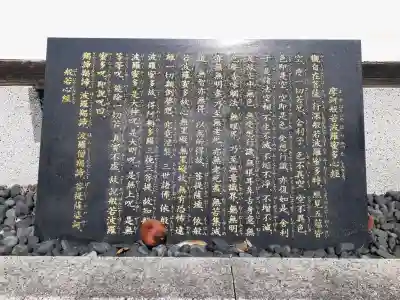 摩訶般若波羅蜜多心経
觀自在菩薩。行深般若波羅蜜多時。照見五蘊皆
空。度一切苦厄。舎利子。色不異空。空不異色。
色即是空。空即是色。受想行識。亦復如是。舎利
子。是諸法空相。不生不滅。不垢不淨。不增不減。
是故空中。無色。無受想行識。無眼耳鼻舌身意。無
色聲香味觸法。無眼界。乃至無意識界。無無明。
亦無無明盡。乃至無老死。亦無老死盡。無苦集滅
道。無智亦無得。以無所得故。菩提薩埵。依般
若波羅蜜多故。心無罣礙。無罣礙故。無有恐怖。遠
離一切顛倒夢想。究竟涅槃。三世諸佛。依般若
波羅蜜多故。得阿耨多羅三藐三菩提。故知般若
波羅蜜多。是大神呪。是大明呪。是無上呪。是無
等等呪。能除一切苦。真實不虚。故説般若波羅
蜜多呪。即説呪曰
羯諦羯諦。波羅羯諦。波羅僧羯諦。菩提薩婆訶。
般若心経